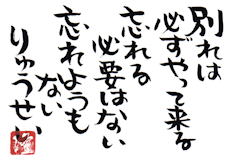 別れは
必ずやって来る
忘れる
必要はない
忘れようも
ない
りゅうせい